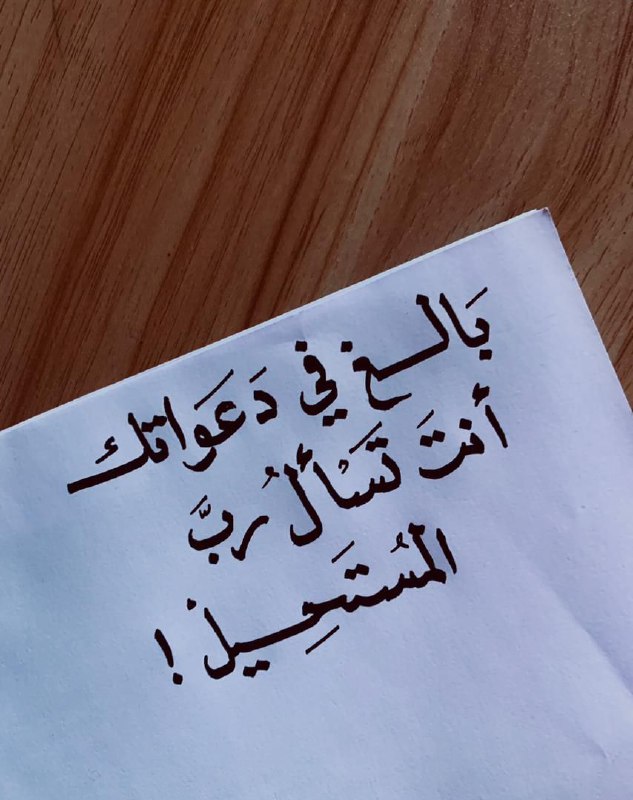 بَالغ في دَعَوَاتك
أنتَ تَسْألُ ربَّ
المُستَحِيلْ !